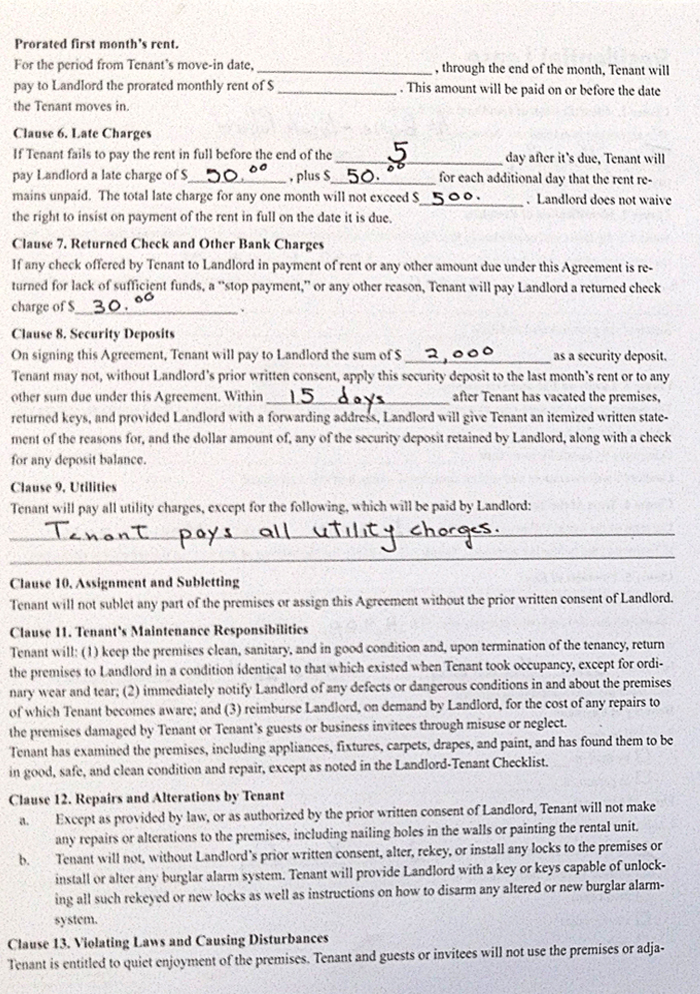 Prorated first month's rent.
For the period from Tenant's move-in date, ____________, through the end of the month, Tenant will
pay to Landlord the prorated monthly rent of $ ____________. This amount will be paid on or before the date
the Tenant moves in.
Clause 6. Late Charges
If Tenant fails to pay the rent in full before the end of the 5 day after it's due, Tenant will
pay Landlord a late charge of $ 50.00, plus $ 50.00 for each additional day that the rent re-
mains unpaid. The total late charge for any one month will not exceed $ 500. . Landlord does not waive
the right to insist on payment of the rent in full on the date it is due.
Clause 7. Returned Check and Other Bank Charges
If any check offered by Tenant to Landlord in payment of rent or any other amount due under this Agreement is re-
turned for lack of sufficient funds, a "stop payment," or any other reason, Tenant will pay Landlord a returned check
charge of $ 30.00.
Clause 8. Security Deposits
On signing this Agreement, Tenant will pay to Landlord the sum of $ 2,000 as a security deposit.
Tenant may not, without Landlord's prior written consent, apply this security deposit to the last month's rent or to any
other sum due under this Agreement. Within 15 days after Tenant has vacated the premises,
returned keys, and provided Landlord with a forwarding address, Landlord will give Tenant an itemized written state-
ment of the reasons for, and the dollar amount of, any of the security deposit retained by Landlord, along with a check
for any deposit balance.
Clause 9. Utilities
Tenant will pay all utility charges, except for the following, which will be paid by Landlord:
Tenant pays all utility charges.
Clause 10. Assignment and Subletting
Tenant will not sublet any part of the premises or assign this Agreement without the prior written consent of Landlord.
Clause 11. Tenant's Maintenance Responsibilities
Tenant will: (1) keep the premises clean, sanitary, and in good condition and, upon termination of the tenancy, return
the premises to Landlord in a condition identical to that which existed when Tenant took occupancy, except for ordi-
nary wear and tear; (2) immediately notify Landlord of any defects or dangerous conditions in and about the premises
of which Tenant becomes aware; and (3) reimburse Landlord, on demand by Landlord, for the cost of any repairs to
the premises damaged by Tenant or Tenant's guests or business invitees through misuse or neglect.
Tenant has examined the premises, including appliances, fixtures, carpets, drapes, and paint, and has found them to be
in good, safe, and clean condition and repair, except as noted in the Landlord-Tenant Checklist.
Clause 12. Repairs and Alterations by Tenant
a. Except as provided by law, or as authorized by the prior written consent of Landlord, Tenant will not make
any repairs or alterations to the premises, including nailing holes in the walls or painting the rental unit.
b. Tenant will not, without Landlord's prior written consent, alter, rekey, or install any locks to the premises or
install or alter any burglar alarm system. Tenant will provide Landlord with a key or keys capable of unlock-
ing all such rekeyed or new locks as well as instructions on how to disarm any altered or new burglar alarm-
system.
Clause 13. Violating Laws and Causing Disturbances
Tenant is entitled to quiet enjoyment of the premises. Tenant and guests or invitees will not use the premises or adja-